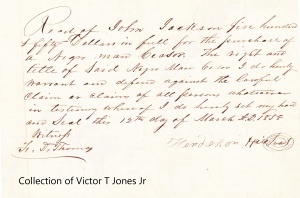 Recd of John Jackson five hundred
& fifty Dollars in full for the purchase of
a Negro man Ceasor. The right and
title of Said Negro Man Ceasor I do hereby
warrant and defend against the lawful
Claim or Claims of all persons whatsoever
in testimony whereof I do hereby set my hand
and Seal this 12th day of March A.D. 1850
Witness
D. Thomas
Seal
Collection of Victor T Jones Jr